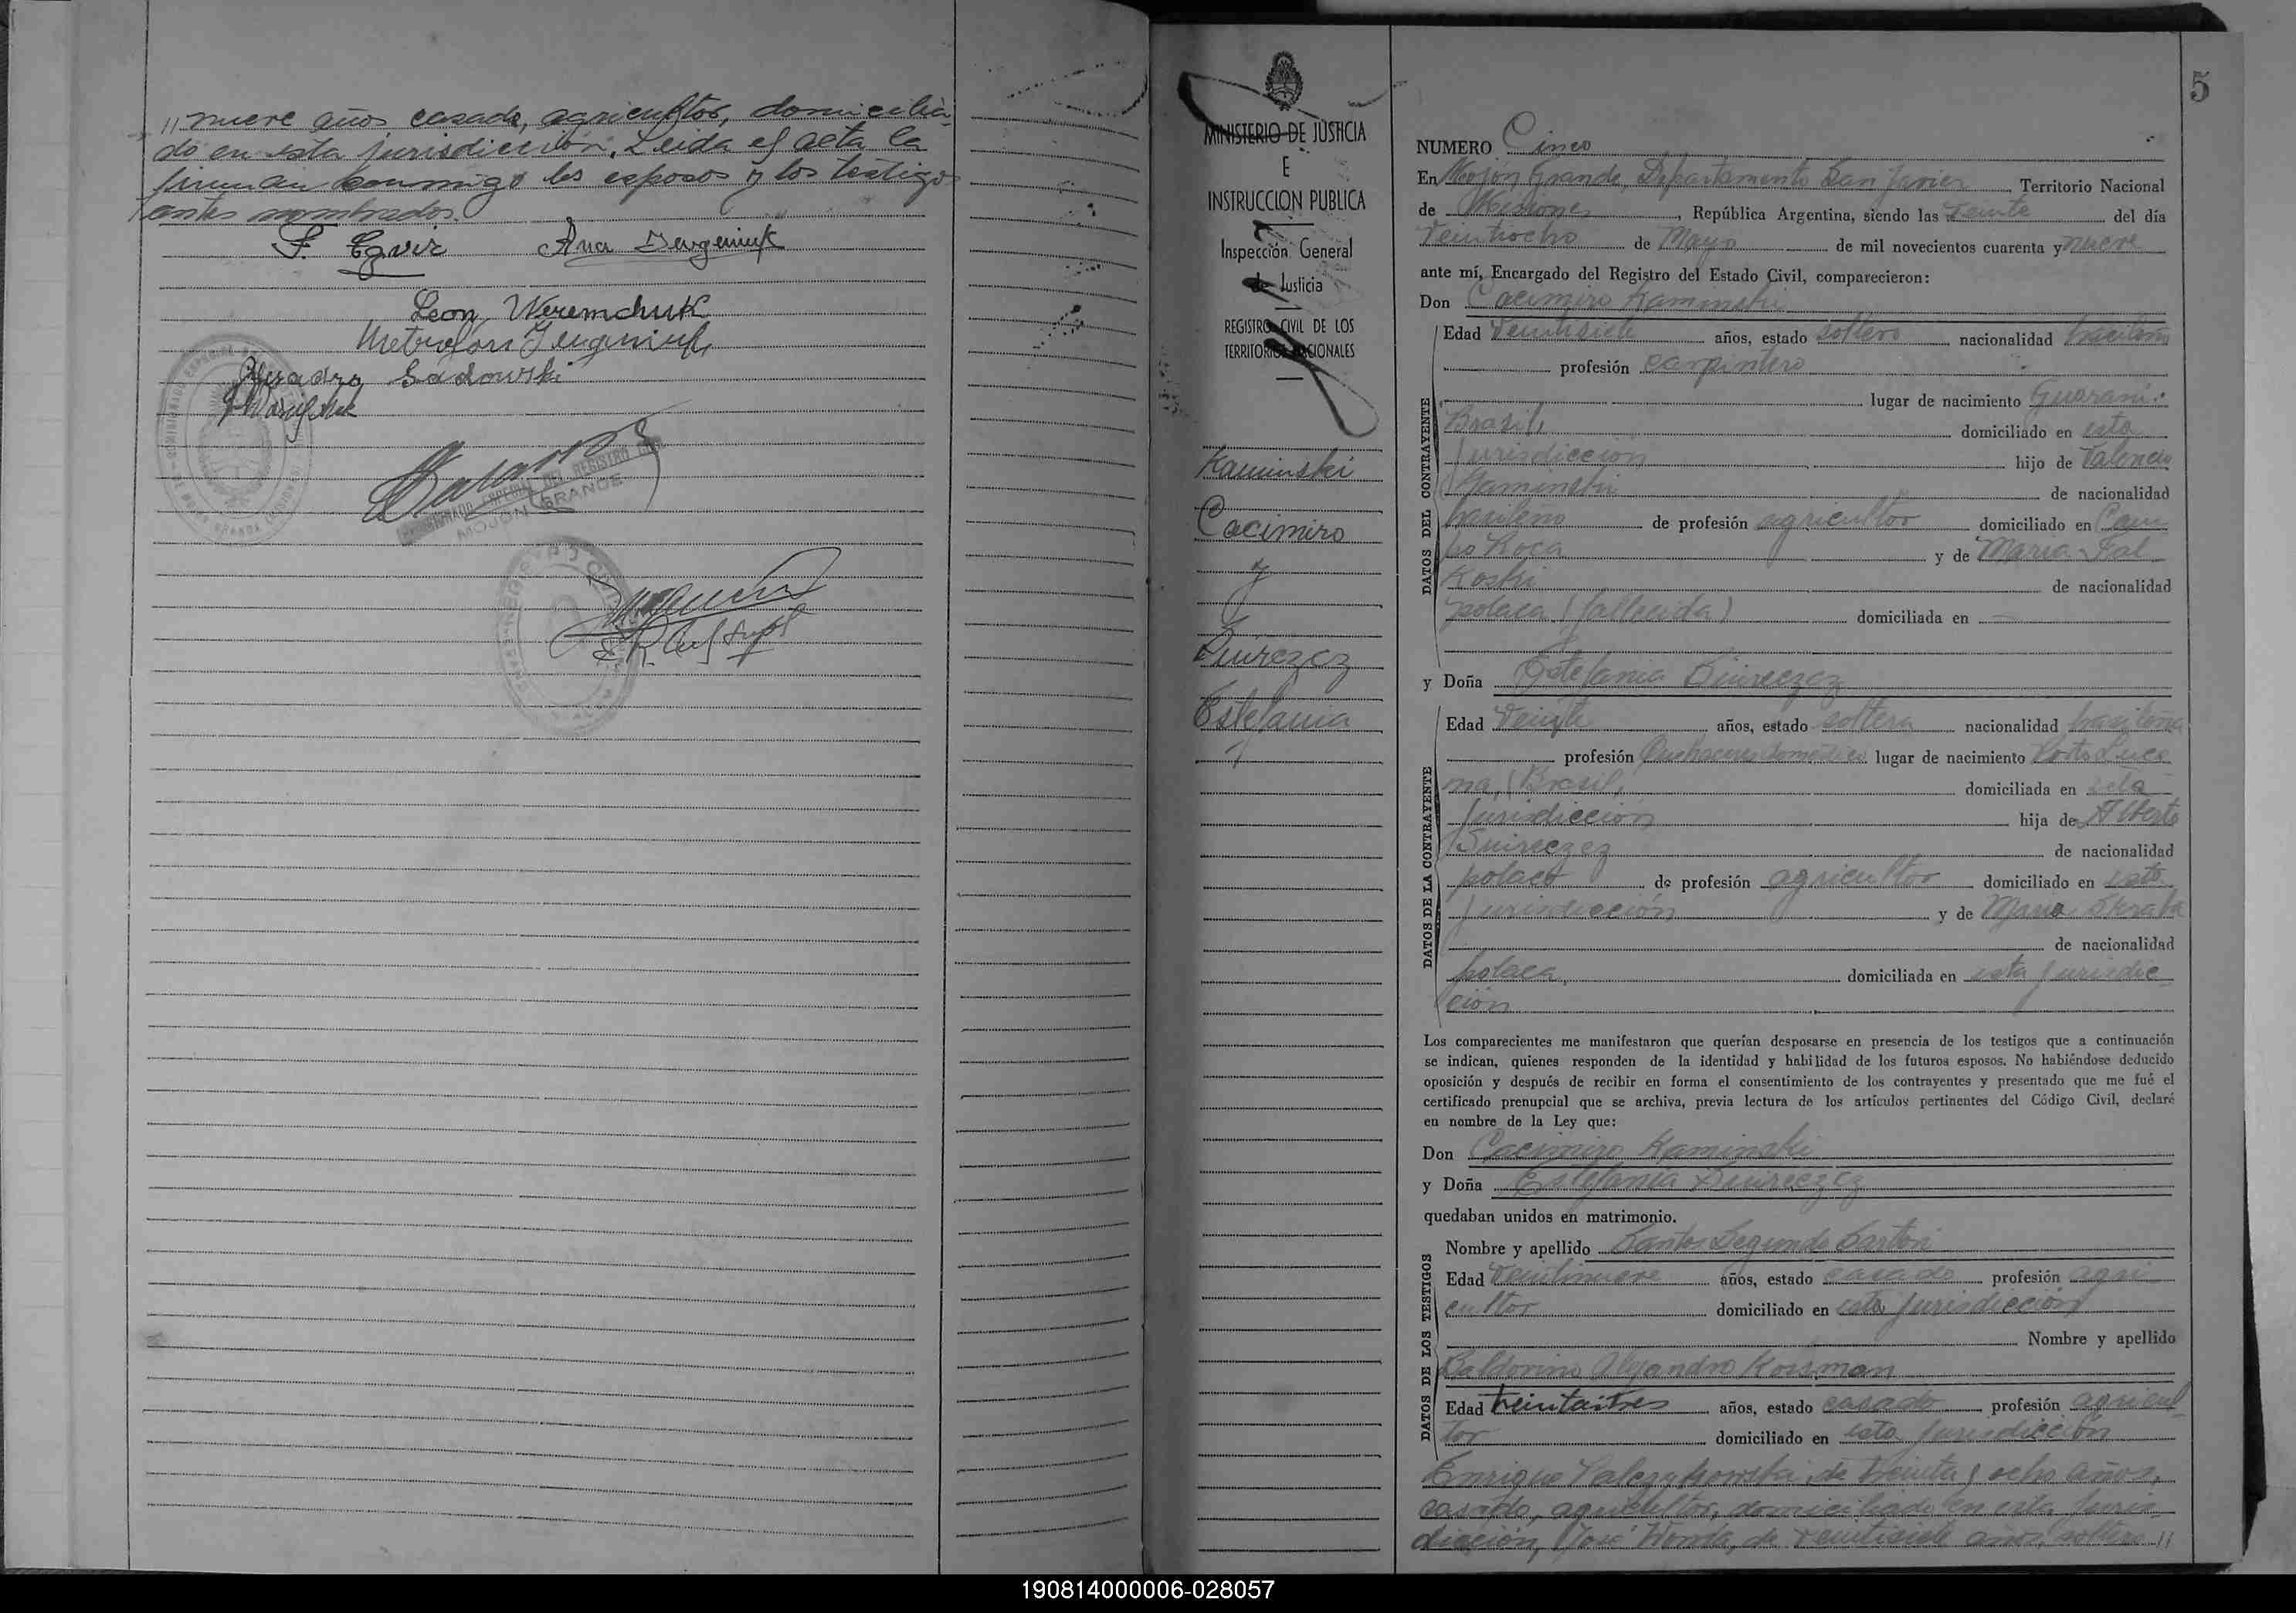 // nueve años casado, agricultor, domicilia
do en esta jurisdicción. Leida el acta la
firman conmigo los esposos y los testigos
antes nombrados.
Leon Weremchuk
Sadowski
MOJON GRANDE
MINISTERIO DE JUSTICIA
E
INSTRUCCION PUBLICA
Inspección General
de Justicia
REGISTRO CIVIL DE LOS
TERRITORIOS NACIONALES
Kaminski
Cacimiro
y
Estefania
5
NUMERO Cinco
En Mojón Grande, Departamento San Javier Territorio Nacional
de Misiones, República Argentina, siendo las veinte del día
veintiocho de Mayo de mil novecientos cuarenta y nueve
ante mí, Encargado del Registro del Estado Civil, comparecieron:
Don Cacimiro Kaminski
DATOS DEL CONTRAYENTE
Edad veintisiete años, estado soltero nacionalidad brasileño
profesión carpintero
lugar de nacimiento Guaraní
Brasil, domiciliado en esta
jurisdicción hijo de
Kaminski de nacionalidad
brasileño de profesión agricultor domiciliado en Cam
po Roca y de Maria Fal
Koski de nacionalidad
polaca (fallecida) domiciliada en —
y Doña Estefania
DATOS DE LA CONTRAYENTE
Edad veinte años, estado soltera nacionalidad brasileña
profesión Quehaceres domésticos lugar de nacimiento Porto Luce
na, (Brasil, domiciliada en esta
jurisdicción hija de Alberto
de nacionalidad
polaco de profesión agricultor domiciliado en esta
jurisdicción y de Maria
de nacionalidad
polaca, domiciliada en esta jurisdic
ción
Los comparecientes me manifestaron que querían desposarse en presencia de los testigos que a continuación
se indican, quienes responden de la identidad y habilidad de los futuros esposos. No habiéndose deducido
oposición y después de recibir en forma el consentimiento de los contrayentes y presentado que me fué el
certificado prenupcial que se archiva, previa lectura de los artículos pertinentes del Código Civil, declaré
en nombre de la Ley que:
Don Cacimiro Kaminski
y Doña Estefania
quedaban unidos en matrimonio.
DATOS DE LOS TESTIGOS
Nombre y apellido Santos Segundo Sartori
Edad veintinueve años, estado casado profesión agri
cultor domiciliado en esta jurisdicción
Nombre y apellido
Baldovino Alejandro Rossman
Edad treintaitres años, estado casado profesión agricul
tor domiciliado en esta jurisdicción
Enrique de treinta y ocho años,
casado, agricultor, domiciliado en esta juris
dicción, José de veintisiete años, soltero //
190814000006-028057